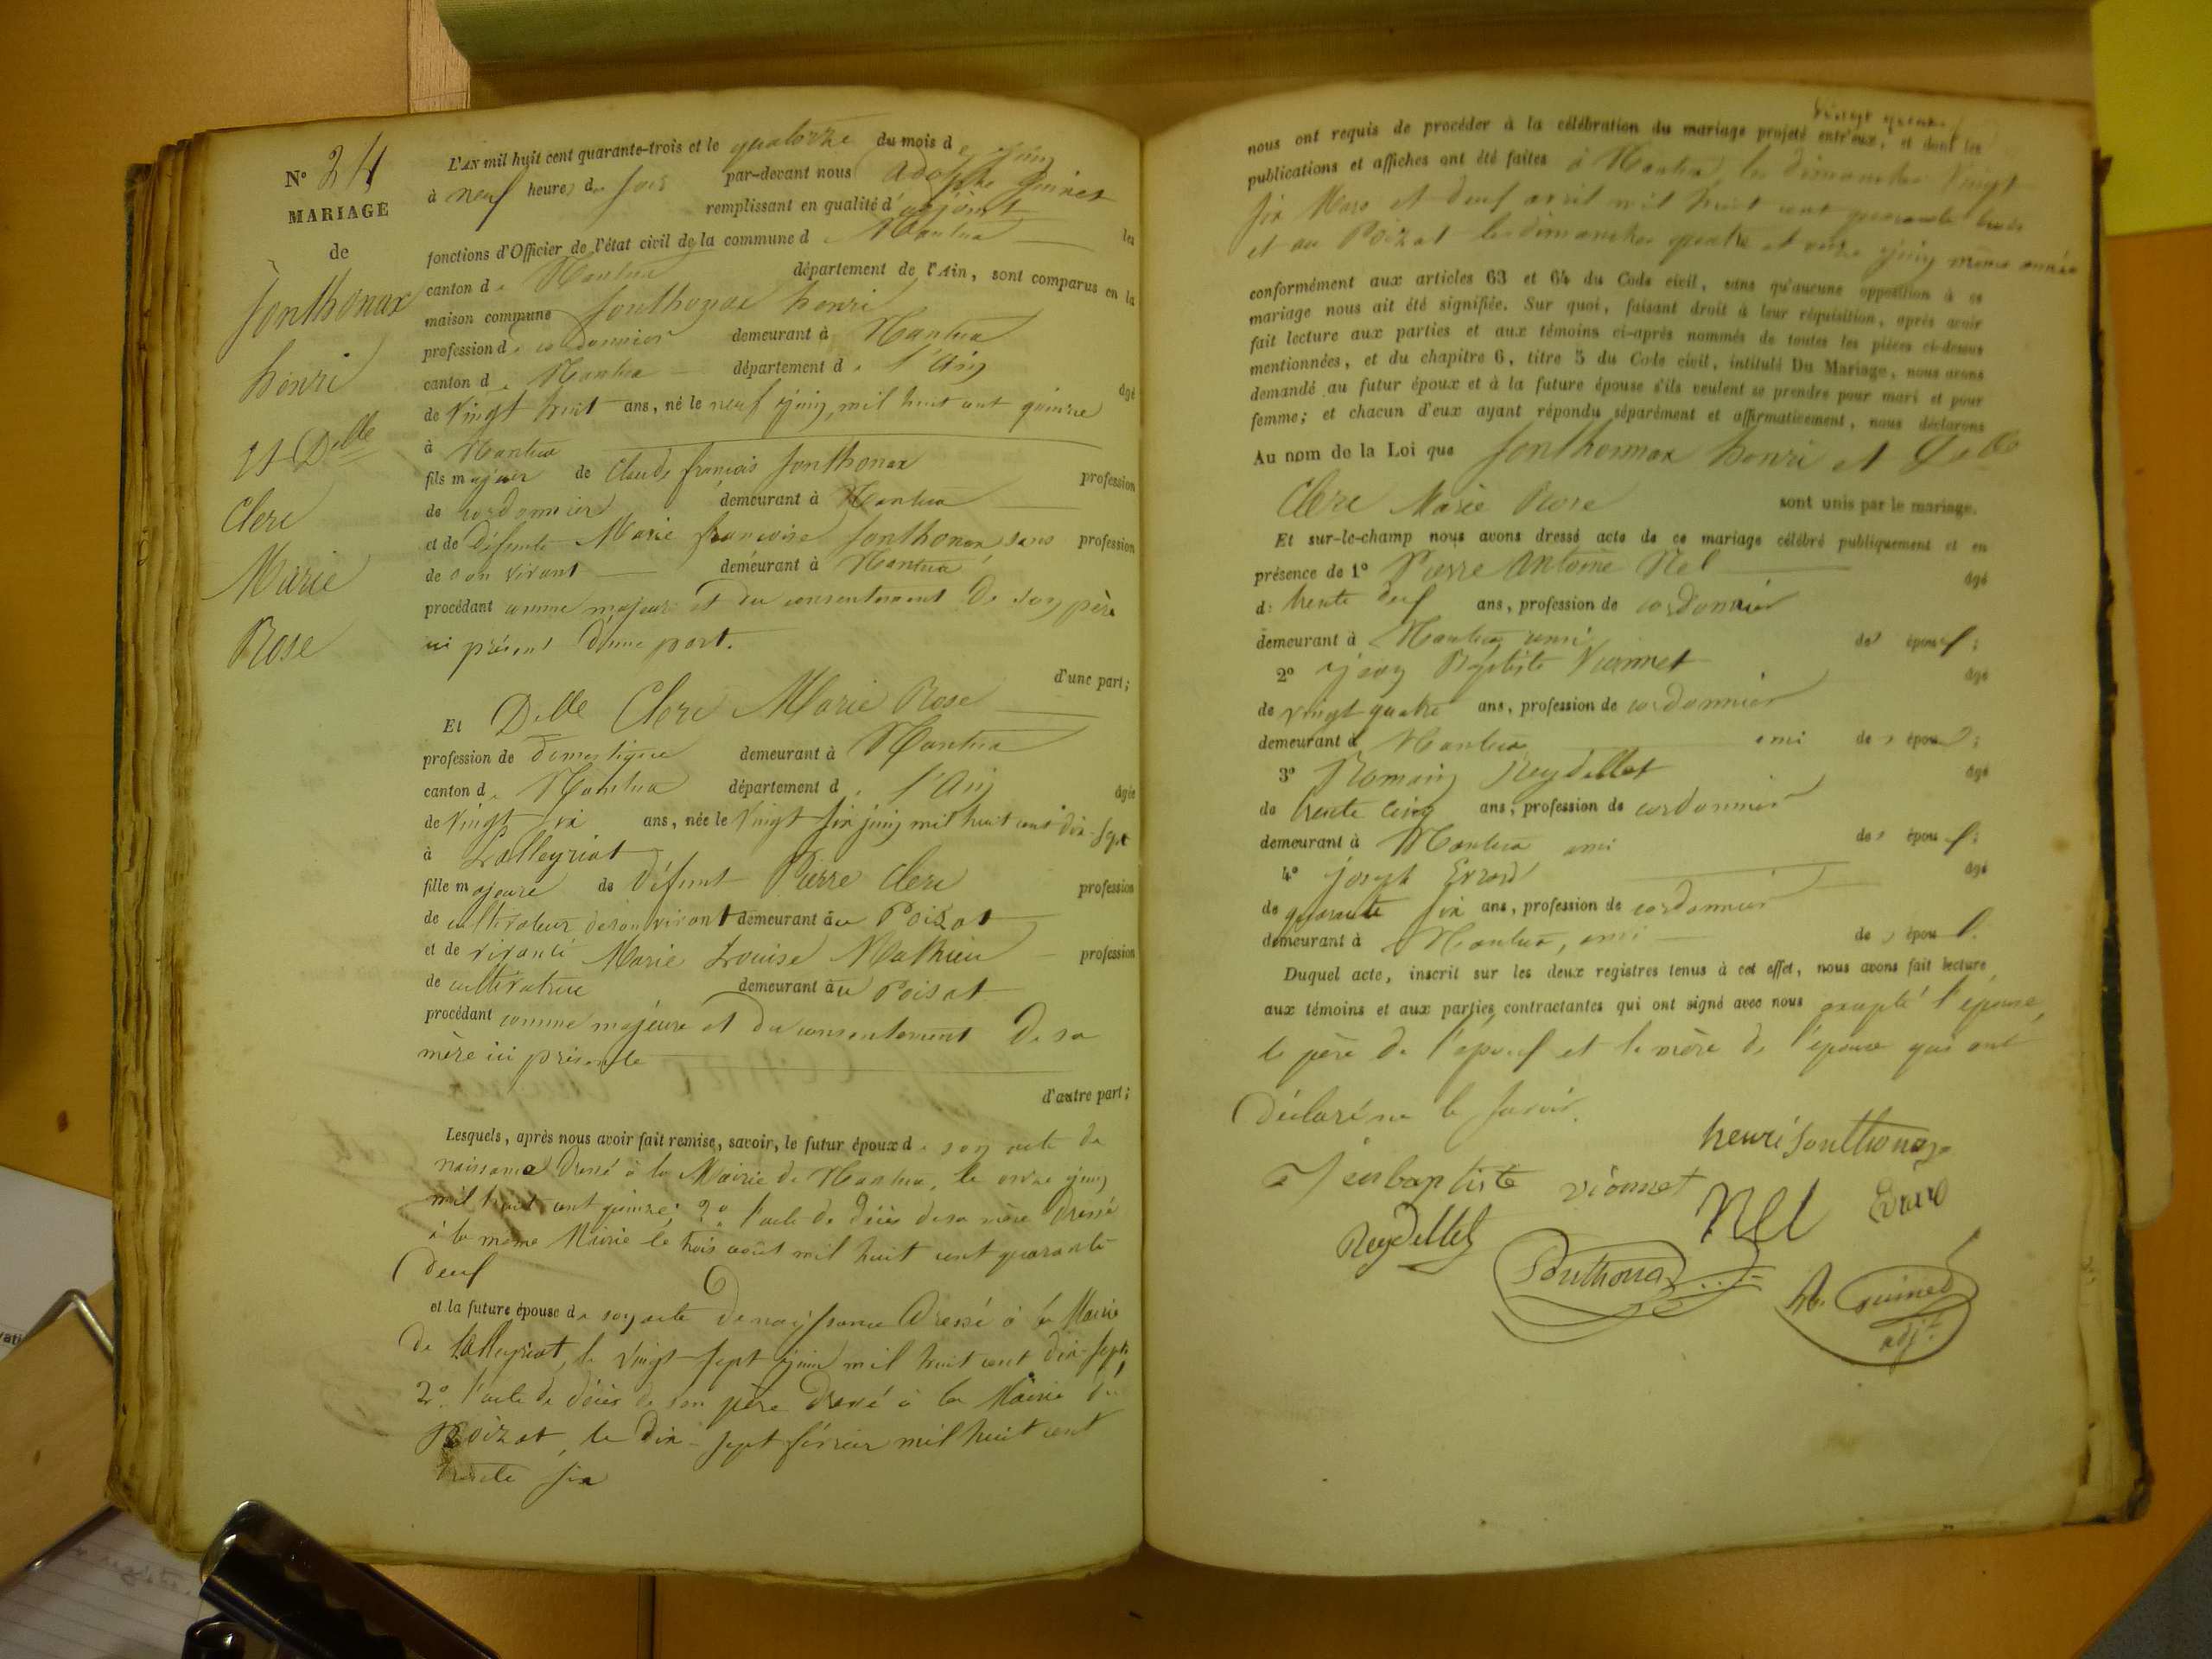 N° 24
MARIAGE
de
Sonthonax
henri
et Delle
Clerc
Marie
Rose
L'AN mil huit cent quarante-trois et le quatorze du mois de juin
à neuf heures du soir par-devant nous Adolphe Guinet
remplissant en qualité d'adjoint les
fonctions d'Officier de l'état civil de la commune de Nantua
canton de Nantua département de l'Ain, sont comparus en la
maison commune Sonthonax henri
profession de cordonnier demeurant à Nantua
canton de Nantua département de l'Ain âgé
de vingt huit ans, né le neuf juin mil huit cent quinze
à Nantua
fils majeur de Claude françois Sonthonax profession
de cordonnier demeurant à Nantua
et de défunte Marie françoise Sonthonax, sans profession
de son vivant demeurant à Nantua
procédant comme majeur et du consentement de son père
ici présent d'une part.
d'une part;
Et Delle Clerc Marie Rose
profession de domestique demeurant à Nantua
canton de Nantua département de l'Ain âgée
de vingt six ans, née le vingt six juin mil huit cent dix-sept
à Lalleyriat
fille majeure de défunt Pierre Clerc profession
de cultivateur de son vivant demeurant au Poizat
et de vivante Marie Louise Mathieu profession
de cultivatrice demeurant au Poisat
procédant comme majeure et du consentement de sa
mère ici présente
d'autre part;
Lesquels, après nous avoir fait remise, savoir, le futur époux de son acte de
naissance dressé à la Mairie de Nantua, le onze juin
mil huit cent quinze; 2° l'acte de décès de sa mère dressé
à la même Mairie le trois août mil huit cent quarante
deux
et la future épouse de son acte de naissance dressé à la Mairie
de Lalleyriat, le vingt-sept juin mil huit cent dix-sept,
2° l'acte de décès de son père dressé à la Mairie du
Poizat, le dix-sept février mil huit cent
trente six
vingt quatre
nous ont requis de procéder à la célébration du mariage projeté entr'eux, et dont les
publications et affiches ont été faites à Nantua, les dimanches vingt
six Mars et deux avril mil huit cent quarante trois
et au Poizat les dimanches quatre et onze juin même année
conformément aux articles 63 et 64 du Code civil, sans qu'aucune opposition à ce
mariage nous ait été signifiée. Sur quoi, faisant droit à leur réquisition, après avoir
fait lecture aux parties et aux témoins ci-après nommés de toutes les pièces ci-dessus
mentionnées, et du chapitre 6, titre 5 du Code civil, intitulé Du Mariage, nous avons
demandé au futur époux et à la future épouse s'ils veulent se prendre pour mari et pour
femme; et chacun d'eux ayant répondu séparément et affirmativement, nous déclarons
Au nom de la Loi que Sonthonnax henri et Delle
Clerc Marie Rose sont unis par le mariage.
Et sur-le-champ nous avons dressé acte de ce mariage célébré publiquement et en
présence de 1° Pierre Antoine Nel âgé
de trente deux ans, profession de cordonnier
demeurant à Nantua ami des époux;
2° jean Baptiste Vionnet âgé
de vingt quatre ans, profession de cordonnier
demeurant à Nantua ami des époux;
3° Romain Reydellet âgé
de trente cinq ans, profession de cordonnier
demeurant à Nantua ami des époux;
4° joseph Evrard âgé
de quarante six ans, profession de cordonnier
demeurant à Nantua, ami des époux.
Duquel acte, inscrit sur les deux registres tenus à cet effet, nous avons fait lecture
aux témoins et aux parties contractantes qui ont signé avec nous excepté l'épouse,
le père de l'époux et la mère de l'épouse qui ont
déclaré ne le savoir.
henri Sonthonax
jeanbaptiste vionnet Nel Evrard
Reydellet Sonthonax
Ad. Guinet
adjt.